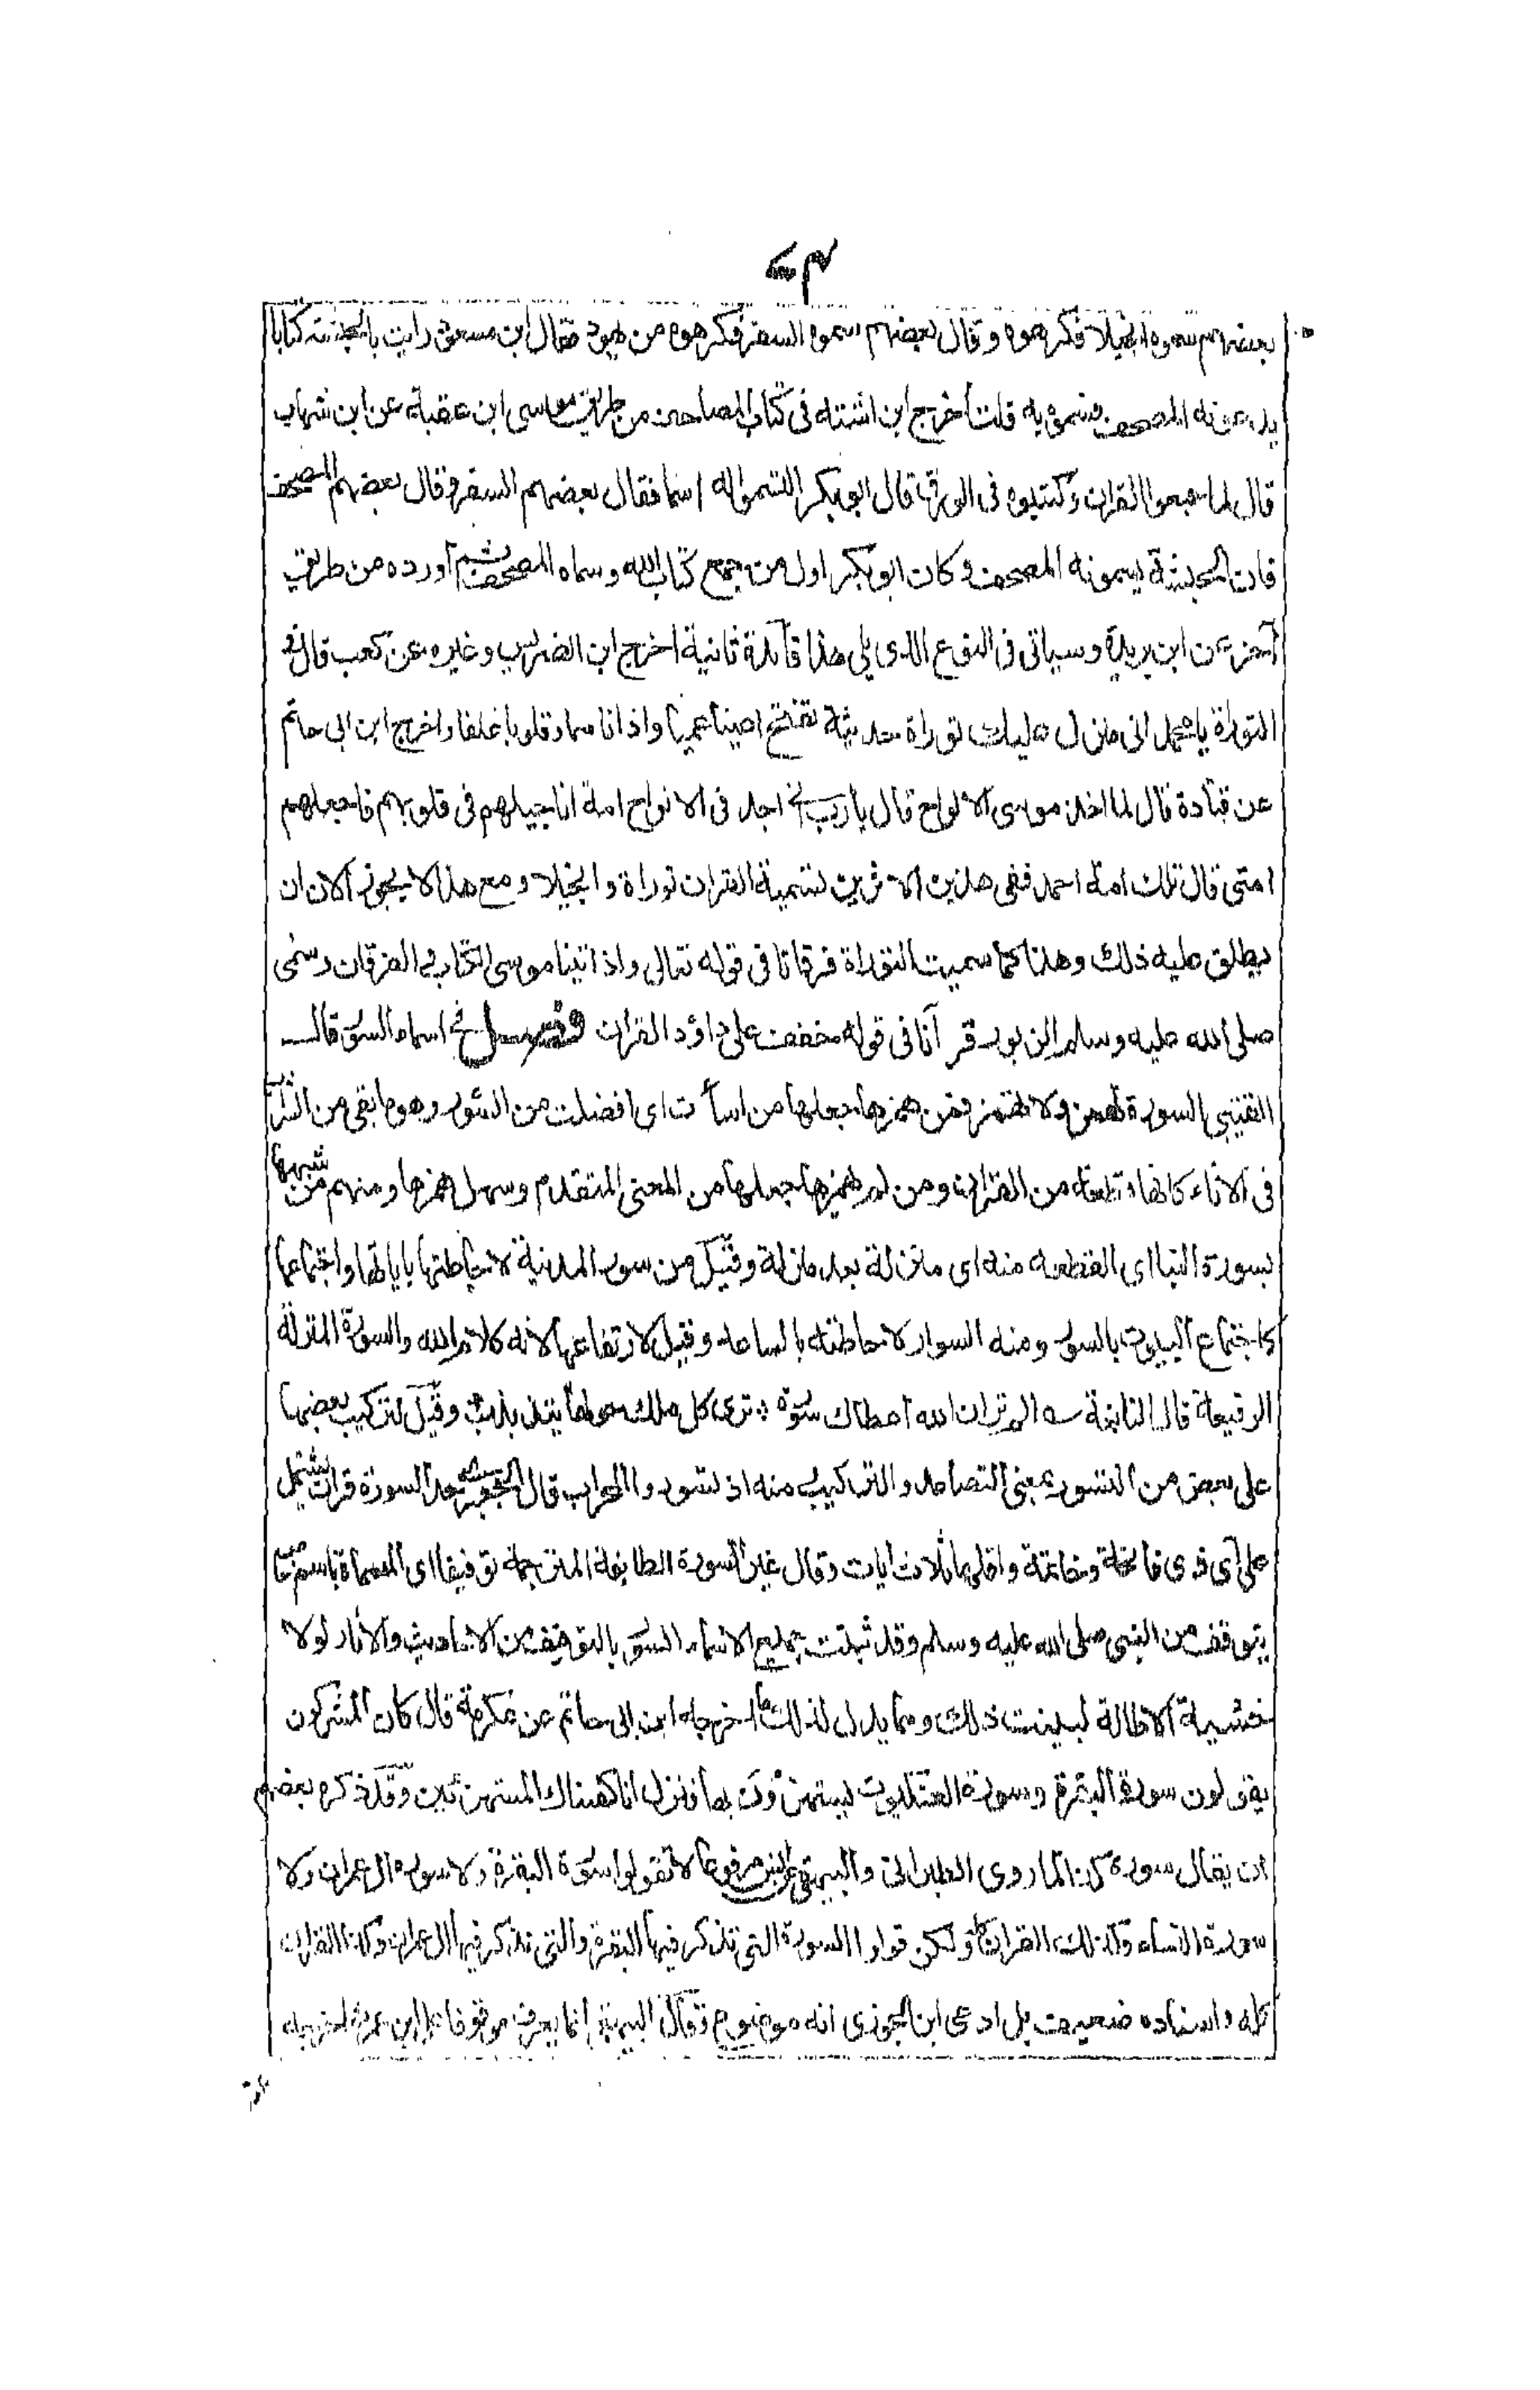 بعضهم سموه انجيلا فكرهوه وقال بعضهم سموه السفر فكرهوه من يهود فقال ابن مسعود رايت بالحبشة كتابا
يدعونه المصحف فسموه به قلت اخرج ابن اشته فى كتاب المصاحف من طريق موسى ابن عقبة عن ابن شهاب
قال لما جمعوا القران وكتبوه فى الورق قال ابو بكر التمسوا له اسما فقال بعضهم السفر وقال بعضهم المصحف
فان الحبشة يسمونه المصحف وكان ابو بكر اول من جمع كتاب الله وسماه المصحف ثم اورده من طريق
آخر عن ابن بريدة وسياتى فى النوع الذى يلى هذا فائدة ثانية اخرج ابن الضريس وغيره عن كعب قال فى
التوراة يا محمد انى منزل عليك توراة حديثة تفتح اعينا عميا واذانا صما وقلوبا غلفا واخرج ابن ابى حاتم
عن قتادة قال لما اخذ موسى الالواح قال يا رب انى اجد فى الالواح امة اناجيلهم فى قلوبهم فاجعلهم
امتى قال تلك امة احمد ففى هذين الاثرين تسمية القران توراة وانجيلا ومع هذا لا يجوز الان ان
يطلق عليه ذلك وهذا كما سميت التوراة فرقانا فى قوله تعالى واذ اتينا موسى الكتاب والفرقان وسمى
صلى الله عليه وسلم الزبور قرآنا فى قوله خفف على داؤد القران فصل فى اسماء السور قال
القتيبى السورة تهمز ولا تهمز فمن همزها جعلها من اسأرت اى افضلت من السور وهو ما بقى من الشراب
فى الاناء كانها قطعة من القران ومن لم يهمزها جعلها من المعنى المتقدم وسهل همزها ومنهم من شبهها
بسورة البناء اى القطعة منه اى منزلة بعد منزلة وقيل من سور المدينة لاحاطتها باياتها واجتماعها
كاجتماع البيوت بالسور ومنه السوار لاحاطته بالساعد وقيل لارتفاعها لانه كلام الله والسورة المنزلة
الرفيعة قال النابغة الم تر ان الله اعطاك سورة ؞ ترى كل ملك حولها يتذبذب وقيل لتركيب بعضها
على بعض من التسور بمعنى التصاعد والتركيب منه اذ تسوروا المحراب قال الجعبرى حد السورة قران يشتمل
على آى ذى فاتحة وخاتمة واقلها ثلاث ايات وقال غيره السورة الطايفة المترجمة توقيفا اى المسماة باسم خاص
بتوقيف من النبى صلى الله عليه وسلم وقد ثبتت جميع الاسماء السور بالتوقيف من الاحاديث والاثار لولا
خشية الاطالة لبينت ذلك ومما يدل لذلك ما اخرجه ابن ابى حاتم عن عكرمة قال كان المشركون
يقولون سورة البقرة وسورة العنكبوت يستهزؤن بها فنزل انا كفيناك المستهزئين وقد كره بعضهم
ان يقال سورة كذا لما روى الطبرانى والبيهقى عن انس مرفوعا لا تقولوا سورة البقرة ولا سورة ال عمران ولا
سورة النساء وكذلك القران كله ولكن قولوا السورة التى تذكر فيها البقرة والتى يذكر فيها ال عمران وكذا القران
كله واسناده ضعيف بل ادعى ابن الجوزى انه موضوع وقال البيهقى انما يعرف موقوفا على ابن عمر ثم اخرجه